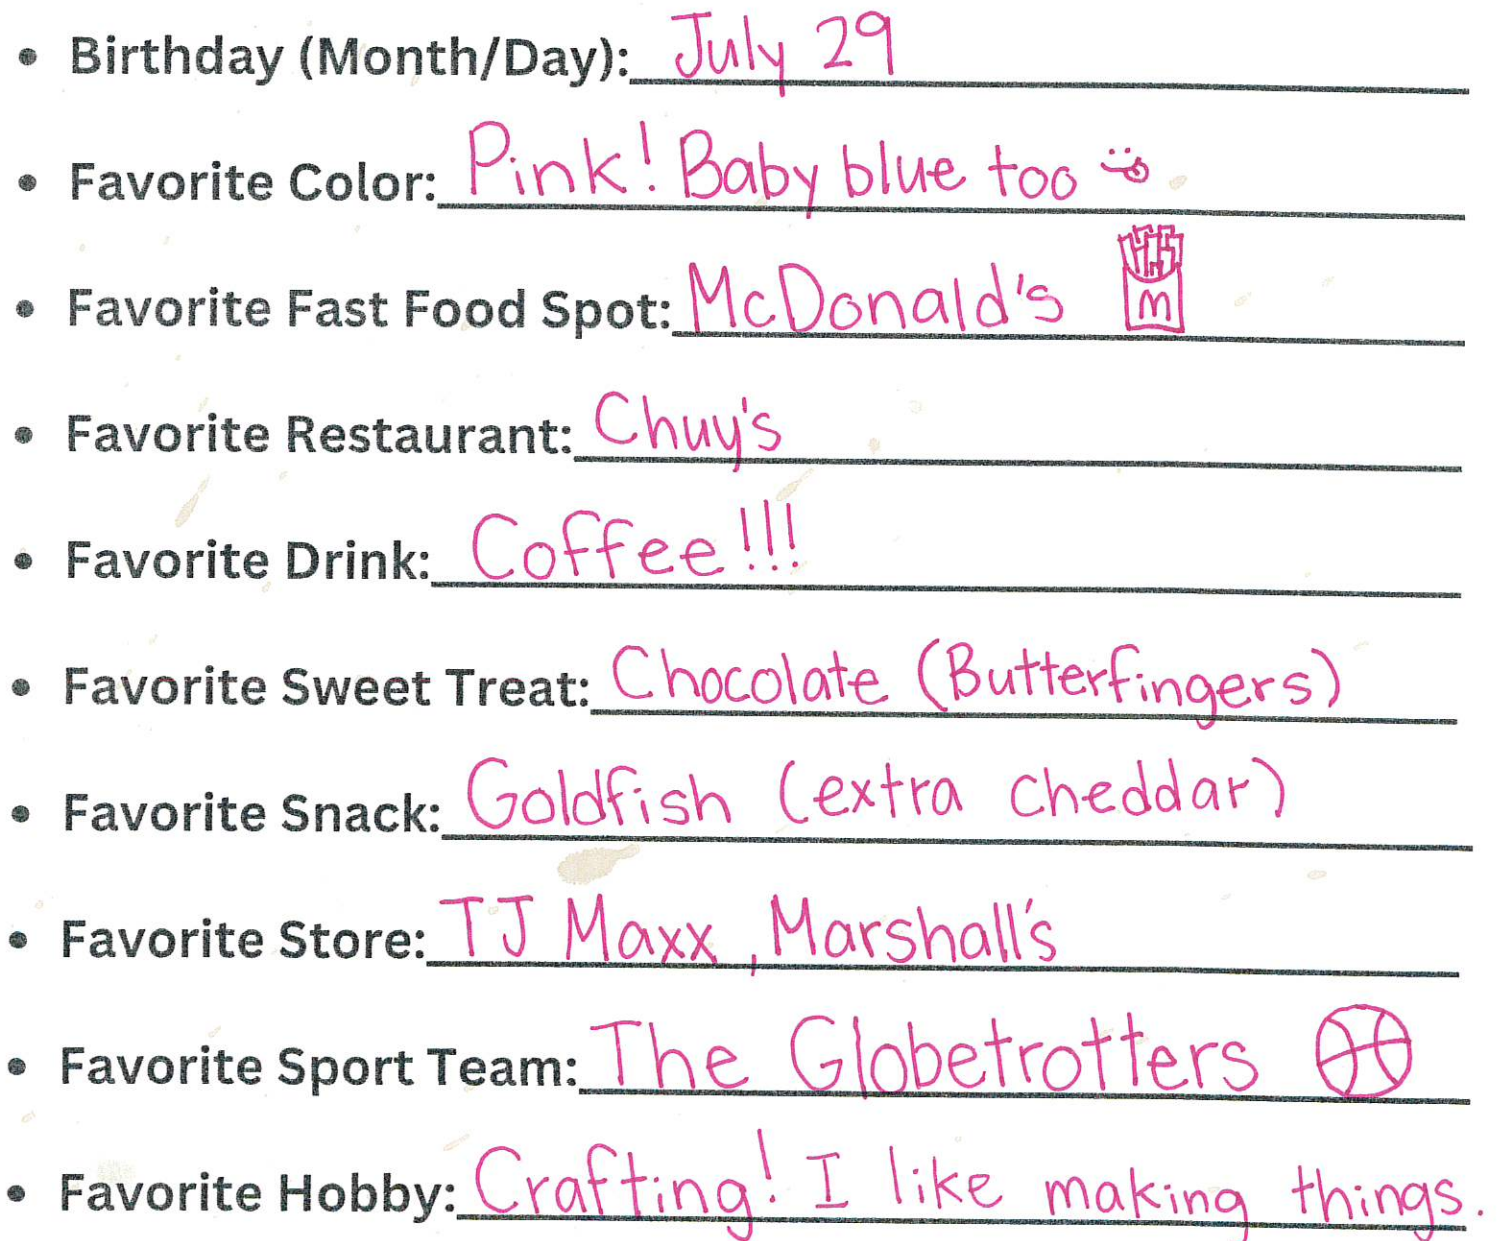 • Birthday (Month/Day): July 29
• Favorite Color: Pink! Baby blue too
• Favorite Fast Food Spot: McDonald's M
• Favorite Restaurant: Chuy's
• Favorite Drink: Coffee!!!
• Favorite Sweet Treat: Chocolate (Butterfingers)
• Favorite Snack: Goldfish (extra cheddar)
• Favorite Store: TJ Maxx, Marshall's
• Favorite Sport Team: The Globetrotters
• Favorite Hobby: Crafting! I like making things.